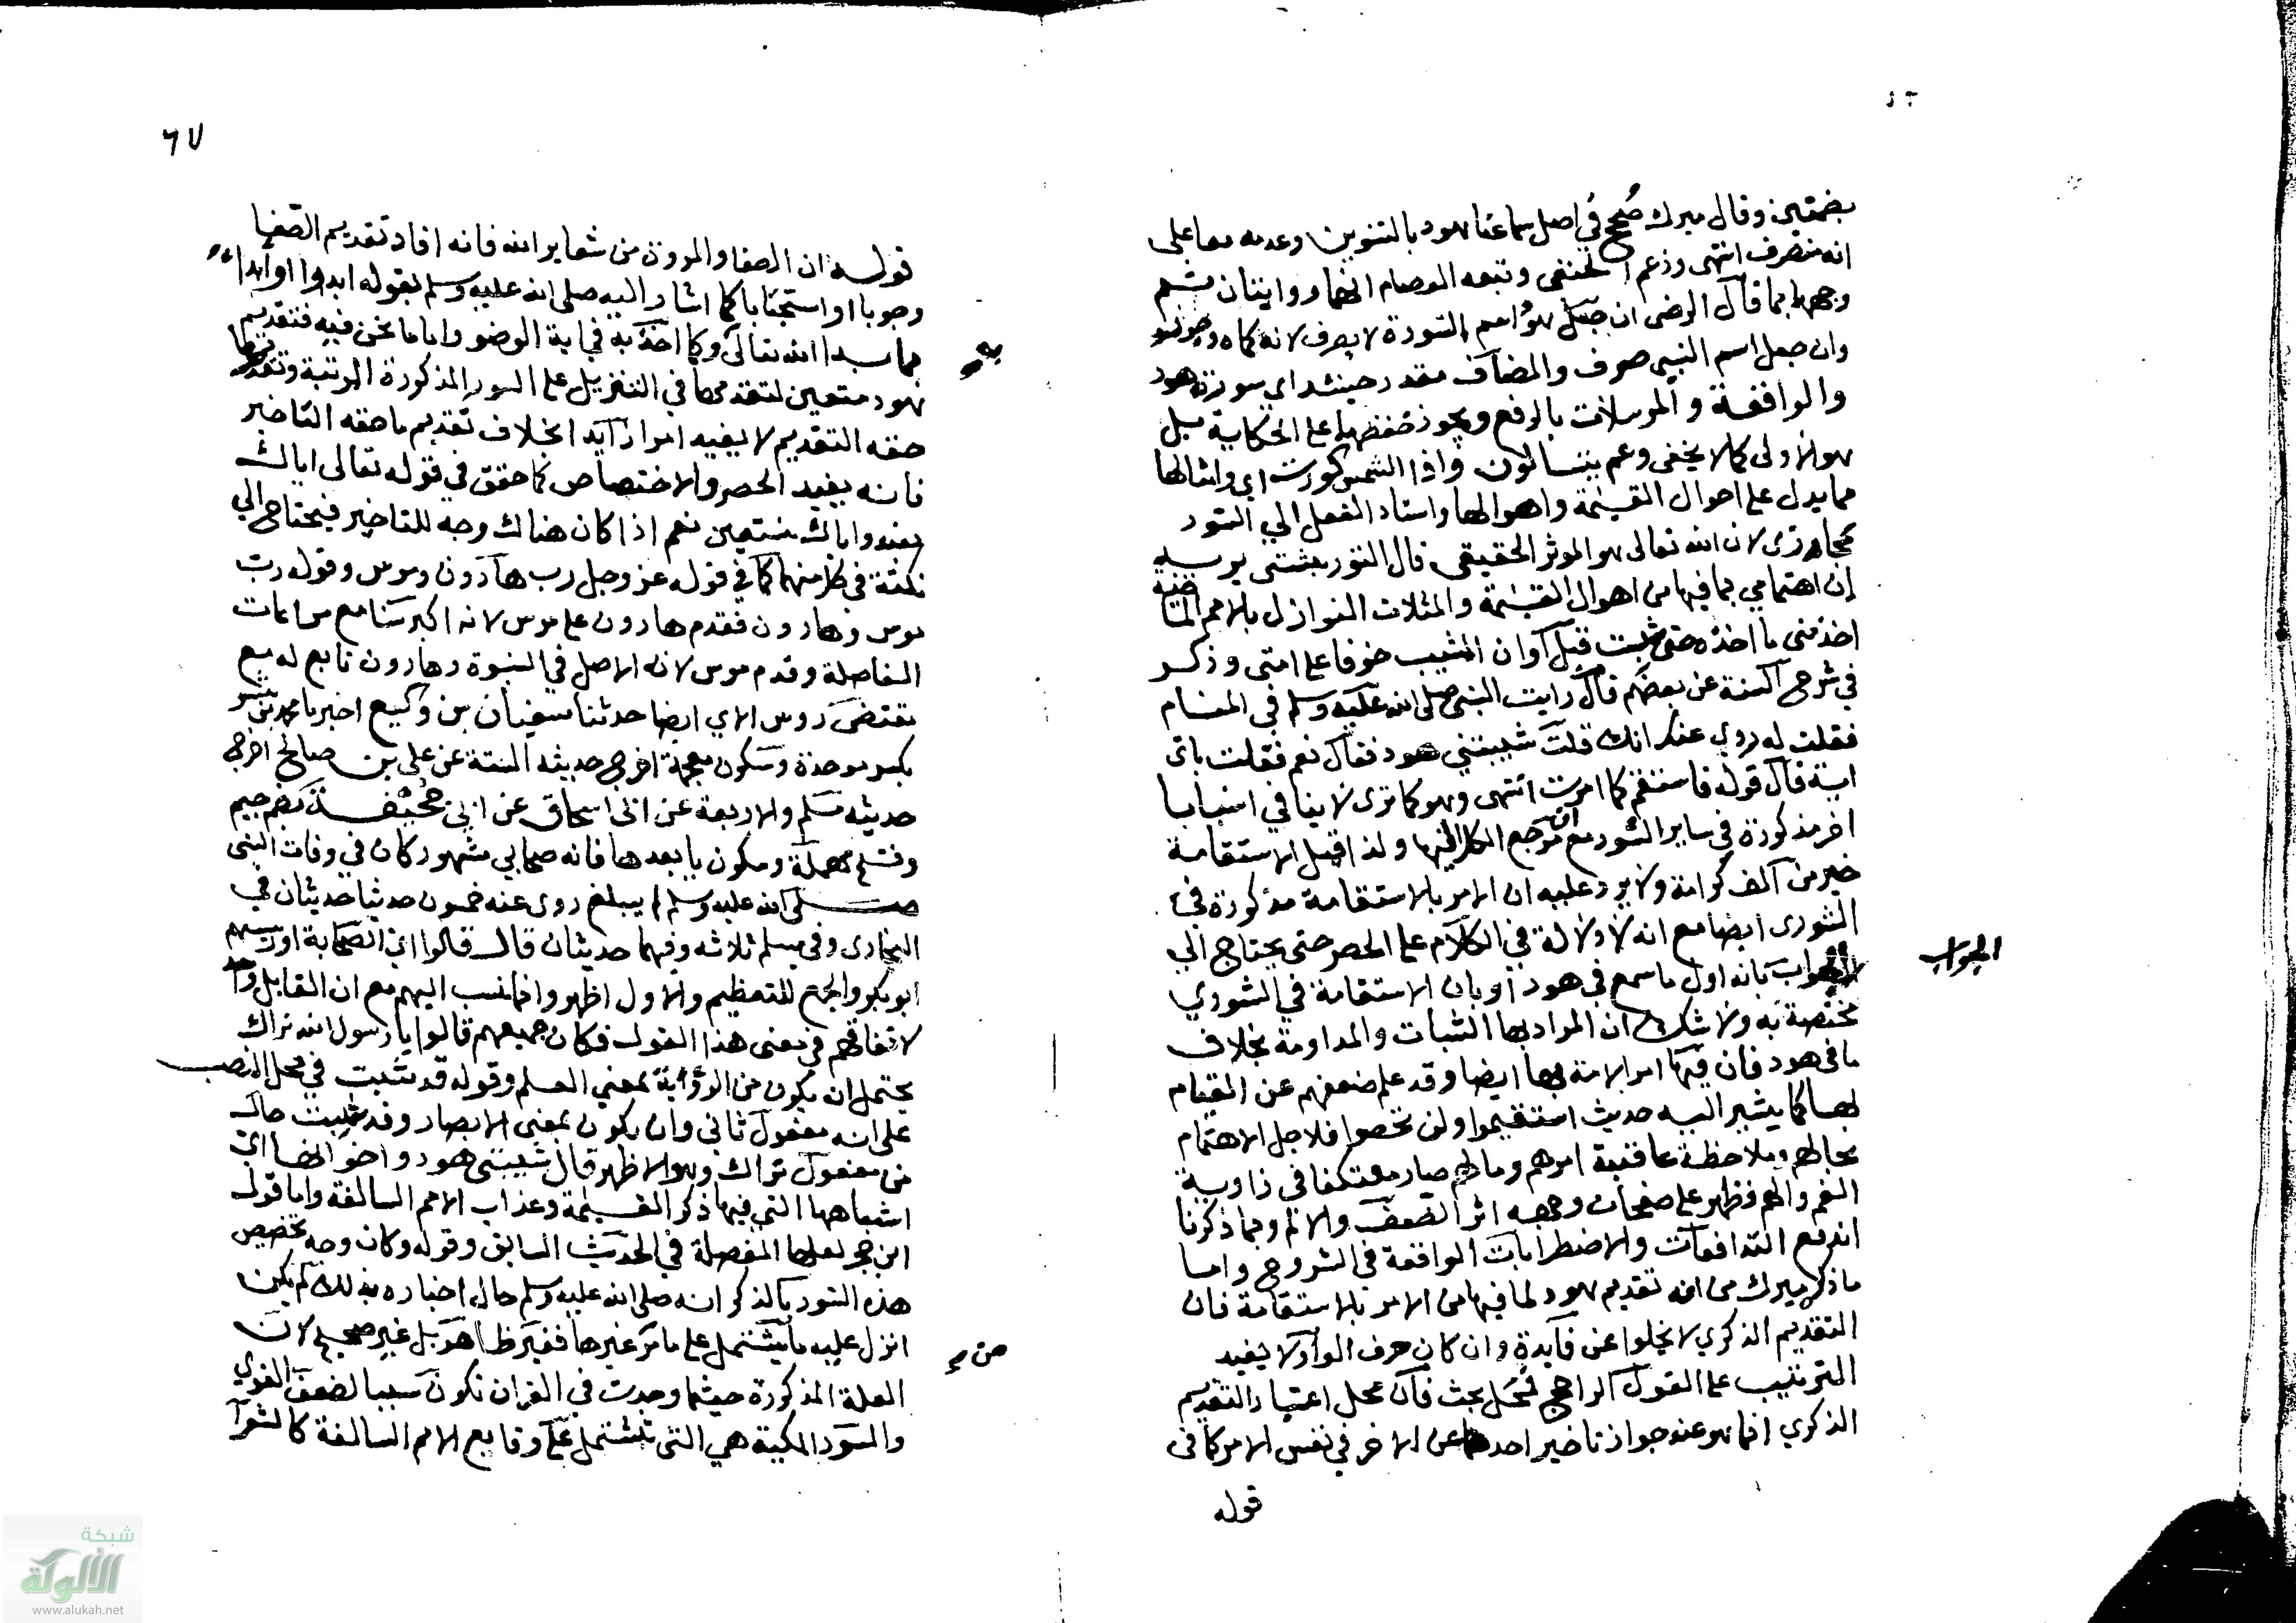 بضمتين وقال ميرك صُحح في اصل سماعنا هود بالتنوين وعدمه معا على
انه منصرف انتهى وزعم الحنفي وتبعه العصام انهما روايتان ثم
وجهها بما قال الرضي ان جعل هود اسم السورة لا يصرف لانه كماه وجور
وان جعل اسم النبي صرف والمضاف مقدر حينئذ اي سورة هود
والواقعة والمرسلات بالرفع ويجوز خفضها على الحكاية بل
هو الاولى كما لا يخفى وعم يتسالون واذا الشمس كورت اي وامثالها
مما يدل على احوال القيمة واهوالها واسناد الفعل الي السور
مجازي لان الله تعالى هو الموثر الحقيقي قال التوربشتي يريد
ان اهتمامي بما فيها من اهوال القيمة والمثلات النوازل بالامم الماضية
اخذ مني ما اخذه حتى شبت قبل اوان المشيب خوفا على امتي وذكر
في شرح السنة عن بعضهم قال رايت النبي صلى الله عليه وسلم في المنام
فقلت له روي عنك انك قلت شيبتني هود فقال نعم فقلت باي
اية قال قوله فاستقم كما امرت انتهى وهو كما ترى لا ينافي اسبابا
اخر مذكورة في ساير السور مع ان مرجع الكل اليها ولذا قيل الاستقامة
خير من الف كرامة ولا يرد عليه ان الامر بالاستقامة مذكورة في
الشورى ايضا مع انه لا دلالة في الكلام على الحصر حتى يحتاج الي
الجواب بانه اول ما سمع في هود او بان الاستقامة في الشوري
الجواب
مختصة به ولا شك ان المراد بها الثبات والمداومة بخلاف
ما في هود فان فيها امر الامة بها ايضا وقد علم ضعفهم عن القيام
بها كما يشير اليه حديث استقيموا ولن تحصوا فلاجل الاهتمام
بحالهم وملاحظة عاقبة امرهم ومالهم صار معتكفا في زاوية
الغم والهم فظهر على صفحات وجهه اثر الضعف والالم وبما ذكرنا
اندفع التدافعات والاضطرابات الواقعة في الشروح واما
ما ذكره ميرك من انه تقديم هود لما فيها من الامر بالاستقامة فان
التقديم الذكري لا يخلوا عن فايدة وان كان حرف الواو لا يفيد
الترتيب على القول الراجح فمحل بحث فان محل اعتبار التقديم
الذكري انما هو عند جواز تاخير احدهما عن الاخر في نفس الامر كما في
قوله
٦٧
قوله ان الصفا والمروة من شعاير الله فانه افاد تقديم الصفا
وجوبا او استحبابا كما اشار اليه صلى الله عليه وسلم بقوله ابدوا او ابدا
بما بدا الله تعالى وكما اخذ به في اية الوضو واما ما نحن فيه فتقديم
هود متعين لتقدمها في التنزيل على السور المذكورة المرتبة وتقديم
حقه التقديم لا يفيد امرا زايدا بخلاف تقديم ما حقه التاخير
فانه يفيد الحصر والاختصاص كما حقق في قوله تعالى اياك
نعبد واياك نستعين نعم اذا كان هناك وجه للتاخير فيحتاج الي
نكتة في كل منهما كما في قوله عز وجل رب هارون وموسى وقوله رب
موسى وهارون فقدم هارون على موسى لانه اكبر سنا مع مراعات
الفاصلة وقدم موسى لانه الاصل في النبوة وهارون تابع له مع
مقتضى روس الاي ايضا حدثنا سفيان بن وكيع اخبرنا محمد بن بشر
بكسر موحدة وسكون معجمة اخرج حديثه الستة عن علي بن صالح اخرج
حديثه مسلم والاربعة عن ابي اسحاق عن ابي جحيفة بضم جيم
وفتح مهملة وسكون يا بعدها فانه صحابي مشهور كان في وفات النبي
صلى الله عليه وسلم لم يبلغ روى عنه خمسون حديثا حديثان في
البخاري وفي مسلم ثلاثه وفيهما حديثان قال قالوا اي الصحابة او رئيسهم
ابو بكر والجمع للتعظيم والاول اظهر وانما نسب اليهم مع ان القايل واحد
لاتفاقهم في معنى هذا القول فكان جميعهم قالوا يا رسول الله نراك
يحتمل ان يكون من الرؤية بمعني العلم وقوله قد شبت في محل النصب
على انه مفعول ثاني وان يكون بمعنى الابصار وقد شبت حال
من مفعول نراك وهو الاظهر قال شيبتني هود واخواتها اي
اشباهها التي فيها ذكر القيمة وعذاب الامم السالفة واما قول
ابن حجر لعلها المفصلة في الحديث السابق وقوله وكان وجه تخصيص
هذه السور بالذكر انه صلى الله عليه وسلم حال اخباره بذلك لم يكن
انزل عليه ما يشتمل على ما مر غيرها فغير ظاهر بل غير صحيح لان
العلة المذكورة حيثما وجدت في القران تكون سببا لضعف القوي
والسور المكية هي التي تشتمل على وقايع الامم السالفة كالشعرا
شبكة
الألوكة
www.alukah.net